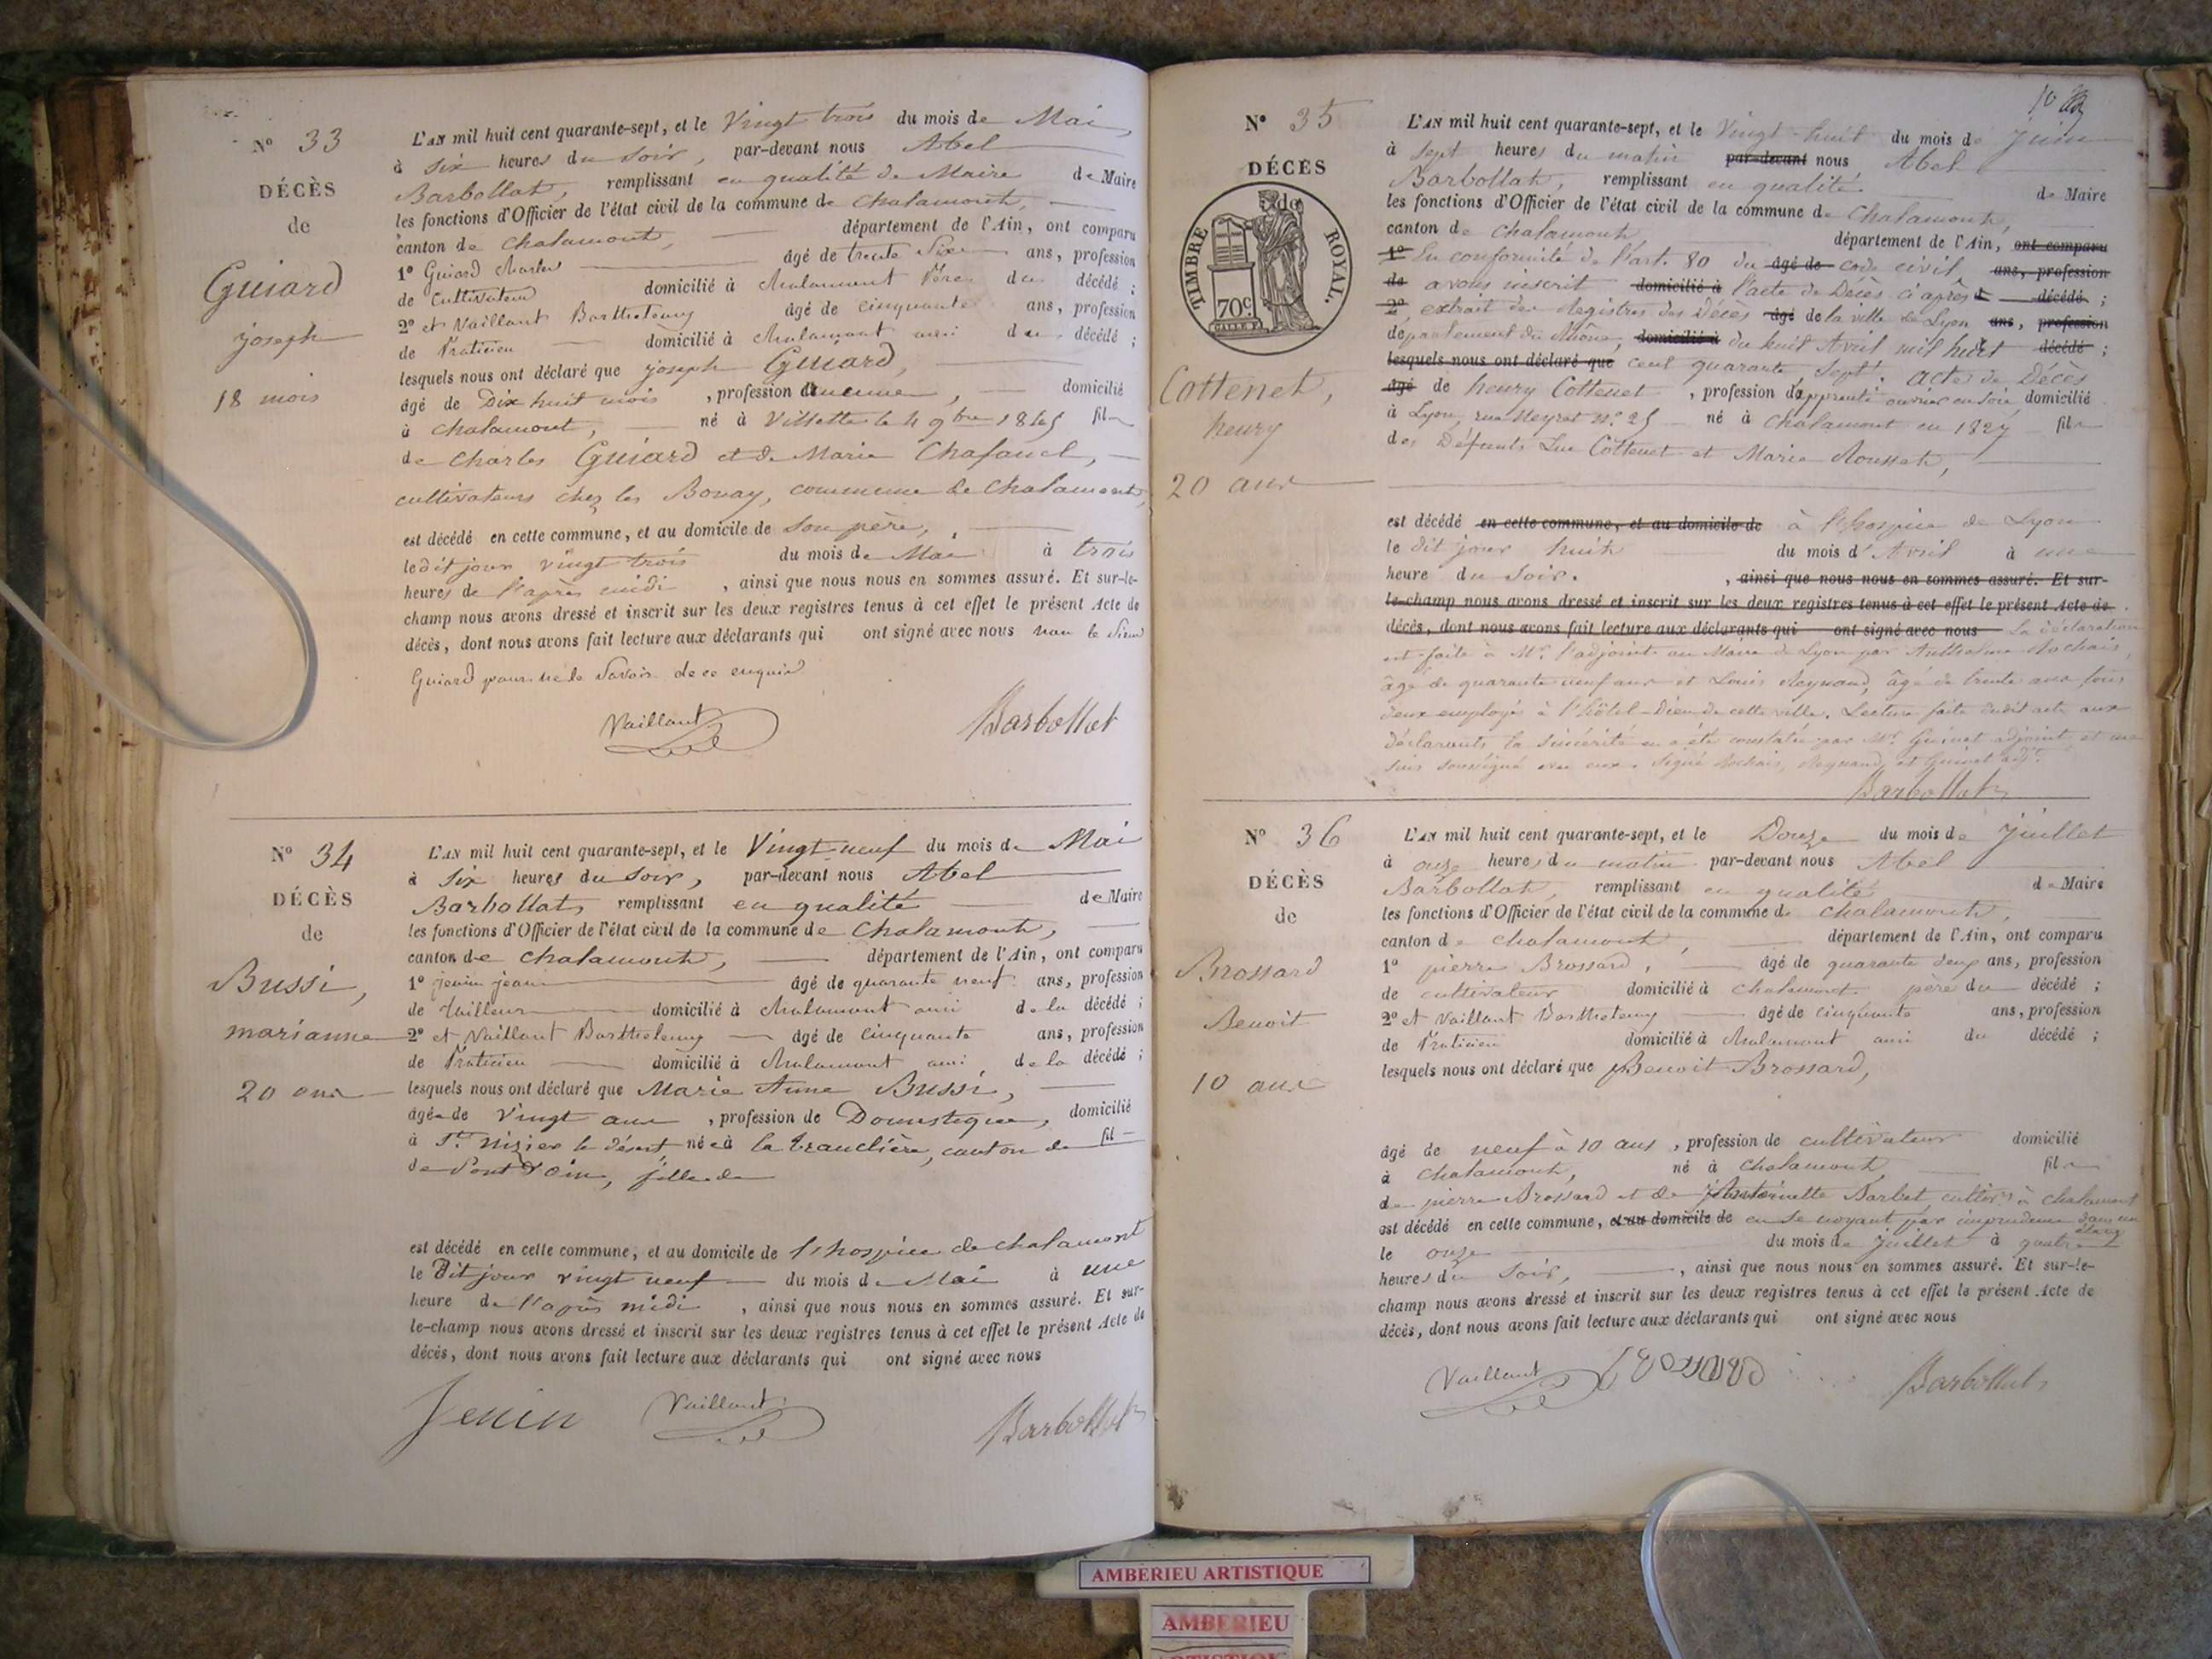 Nº 33
DÉCÈS
de
Guiard
joseph
18 mois
L'AN mil huit cent quarante-sept, et le Vingt trois du mois de Mai,
à six heures du soir, par-devant nous Abel
Barbollat, remplissant en qualité de Maire de Maire
les fonctions d'Officier de l'état civil de la commune de Chalamont,
canton de Chalamont, département de l'Ain, ont comparu
1º Guiard Charles âgé de trente six ans, profession
de Cultivateur domicilié à Chalamont Père du décédé ;
2º et Vaillant Barthelemy âgé de cinquante ans, profession
de Praticien domicilié à Chalamont ami du décédé ;
lesquels nous ont déclaré que joseph Guiard,
âgé de Dix huit mois , profession aucune, domicilié
à Chalamont, né à Villette le 4 9bre 1845 fils
de Charles Guiard et de Marie
cultivateurs chez les Bonay, commune de Chalamont,
est décédé en cette commune, et au domicile de son père,
le dit jour vingt trois du mois de Mai à trois
heures de l'après midi , ainsi que nous nous en sommes assuré. Et sur-le-
champ nous avons dressé et inscrit sur les deux registres tenus à cet effet le présent Acte de
décès, dont nous avons fait lecture aux déclarants qui ont signé avec nous non le Sieur
Guiard pour ne le savoir de ce enquis
Vaillant Barbollat
Nº 34
DÉCÈS
de
Bussi,
marianne
20 ans
L'AN mil huit cent quarante-sept, et le Vingt-neuf du mois de Mai
à six heures du soir, par-devant nous Abel
Barbollat, remplissant en qualité de Maire
les fonctions d'Officier de l'état civil de la commune de Chalamont,
canton de Chalamont, département de l'Ain, ont comparu
1º jenin jean âgé de quarante neuf ans, profession
de tailleur domicilié à Chalamont ami de la décédé ;
2º et Vaillant Barthelemy âgé de cinquante ans, profession
de Praticien domicilié à Chalamont ami de la décédé ;
lesquels nous ont déclaré que Marie Anne Bussi,
âgée de vingt ans , profession de Domestique, domicilié
à St. nizier le désert, née à la tranclière, canton de fil
de Pont d'ain, fille de
est décédé en cette commune, et au domicile de l'hospice de chalamont
le Dit jour vingt neuf du mois de Mai à une
heure de l'après midi , ainsi que nous nous en sommes assuré. Et sur-
le-champ nous avons dressé et inscrit sur les deux registres tenus à cet effet le présent Acte de
décès, dont nous avons fait lecture aux déclarants qui ont signé avec nous
Jenin Vaillant Barbollat
10
Nº 35
DÉCÈS
de
TIMBRE ROYAL.
70c.
Cottenet,
henry
20 ans
L'AN mil huit cent quarante-sept, et le Vingt-huit du mois de juin
à sept heures du matin par-devant nous Abel
Barbollat, remplissant en qualité de Maire
les fonctions d'Officier de l'état civil de la commune de Chalamont,
canton de Chalamont département de l'Ain, ont comparu
1º En conformité de l'art. 80 du âgé de code civil ans, profession
de avons inscrit domicilié à l'acte de Décès ci après décédé ;
2º extrait des Registres des Décès âgé de la ville de Lyon ans, profession
département du Rhône, domicilié à du huit Avril mil huit décédé ;
lesquels nous ont déclaré que cent quarante sept. acte de Décès
âgé de henry Cottenet , profession d'apprenti ouvrier en soie domicilié
à Lyon, rue Neyret nº 25 né à Chalamont en 1827 fils
des Défunts Luc Cottenet et Marie Rousset,
est décédé en cette commune, et au domicile de à l'hospice de Lyon
le dit jour huit du mois d'Avril à une
heure du soir. , ainsi que nous nous en sommes assuré. Et sur-
le-champ nous avons dressé et inscrit sur les deux registres tenus à cet effet le présent Acte de
décès, dont nous avons fait lecture aux déclarants qui ont signé avec nous La déclaration
est faite à Mr. l'adjoint au Maire de Lyon par Anthelme Rochais,
âgé de quarante neuf ans et Louis Reynaud, âgé de trente ans tous
deux employés à l'hôtel-Dieu de cette ville. Lecture faite dudit acte aux
déclarants la sincérité en a été constatée par Mr. Guinet adjoint et me
suis soussigné avec eux. Signé Rochais, Reynaud, et Guinet adjt.
Barbollat
Nº 36
DÉCÈS
de
Brossard
Benoit
10 ans
L'AN mil huit cent quarante-sept, et le Douze du mois de juillet
à onze heures du matin par-devant nous Abel
Barbollat, remplissant en qualité de Maire
les fonctions d'Officier de l'état civil de la commune de Chalamont,
canton de Chalamont, département de l'Ain, ont comparu
1º pierre Brossard, âgé de quarante deux ans, profession
de cultivateur domicilié à Chalamont père du décédé ;
2º et Vaillant Barthelemy âgé de cinquante ans, profession
de Praticien domicilié à Chalamont ami du décédé ;
lesquels nous ont déclaré que Benoit Brossard,
âgé de neuf à 10 ans, profession de cultivateur domicilié
à Chalamont, né à Chalamont fils
de pierre Brossard et de Antoinette Barbet, cultivrs à chalamont
est décédé en cette commune, et au domicile de en se noyant par imprudence dans un
étang
le onze du mois de juillet à quatre
heures du soir, , ainsi que nous nous en sommes assuré. Et sur-le-
champ nous avons dressé et inscrit sur les deux registres tenus à cet effet le présent Acte de
décès, dont nous avons fait lecture aux déclarants qui ont signé avec nous
Vaillant Barbollat
AMBERIEU ARTISTIQUE
AMBERIEU
ARTISTIQUE